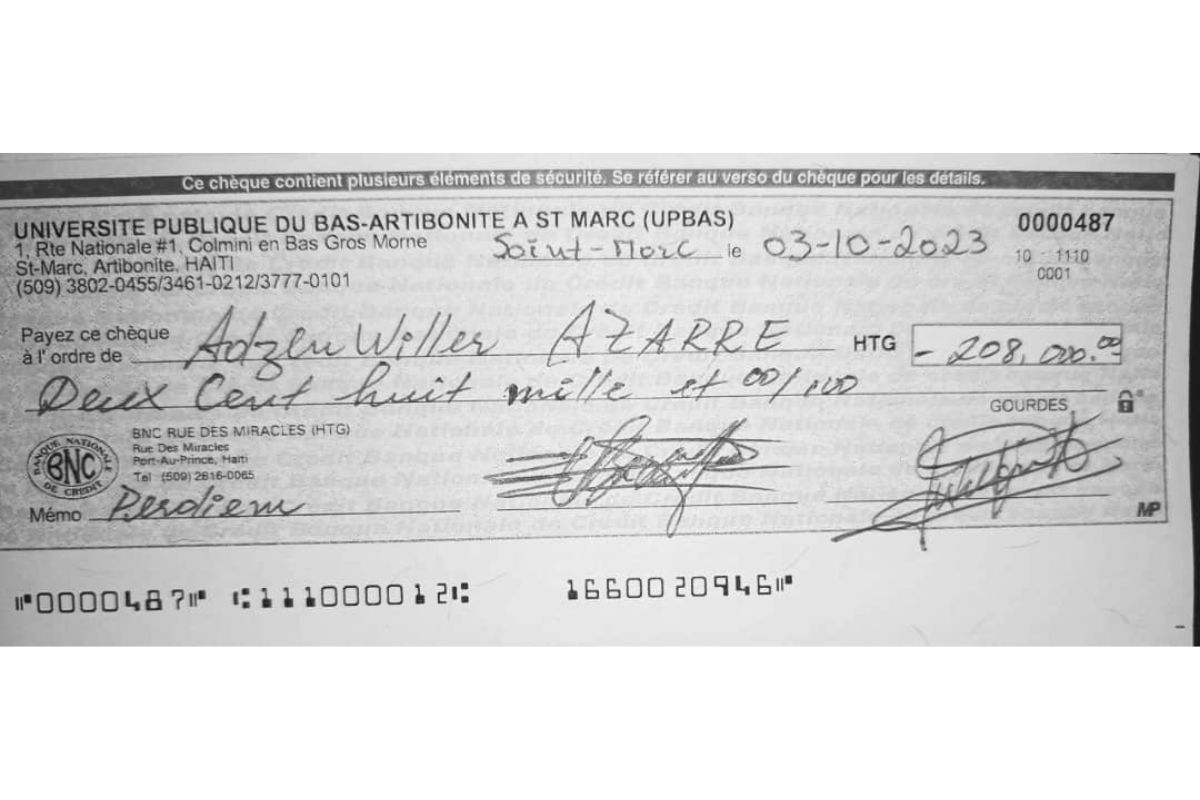 Ce chèque contient plusieurs éléments de sécurité. Se référer au verso du chèque pour les détails.
UNIVERSITE PUBLIQUE DU BAS-ARTIBONITE A ST MARC (UPBAS)
0000487
1, Rte Nationale #1, Colmini en Bas Gros Morne
Saint-Marc le 03-10-2023
10 1110
0001
St-Marc, Artibonite, HAITI
(509) 3802-0455/3461-0212/3777-0101
Payez ce chèque
à l'ordre de Adzer Willer AZARRE HTG -208,000.00
Deux Cent huit mille et 00/100
GOURDES
BANQUE NATIONALE DE CREDIT
BNC
BNC RUE DES MIRACLES (HTG)
Rue Des Miracles
Port-Au-Prince, Haiti
Tel : (509) 2816-0065
Mémo Perdiem
MP
0000487 111000012 1660020946